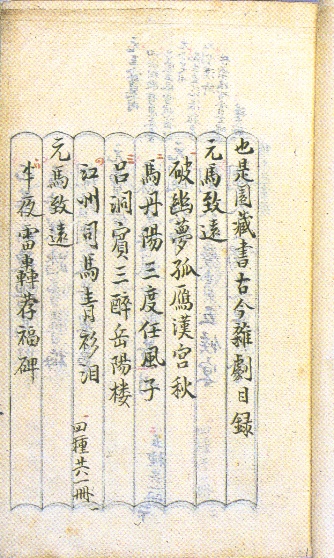 也是園藏書古今雜劇目錄
元馬致遠
破幽夢孤鴈漢宮秋
馬丹陽三度任風子
呂洞賓三醉岳陽楼
江州司馬青衫泪
四種共一冊
元馬致遠
半夜雷轟荐福碑